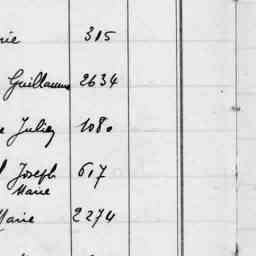 315
Guillaume 2634
Julien 1080
Joseph 617
Marie
Marie 2274